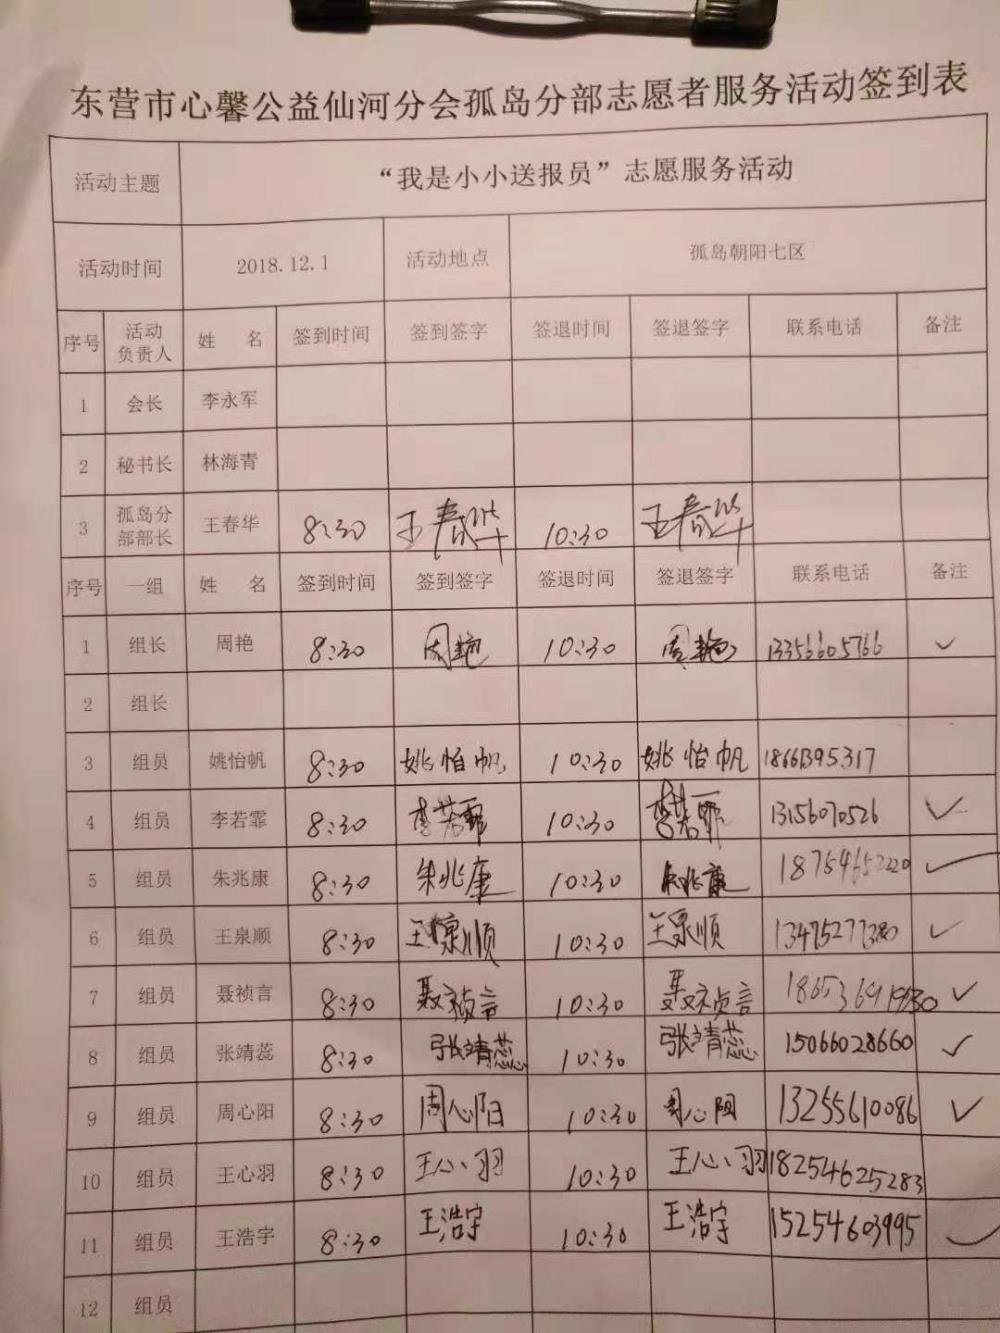 东营市心馨公益仙河分会孤岛分部志愿者服务活动签到表
活动主题 “我是小小送报员”志愿服务活动
活动时间 2018.12.1 活动地点 孤岛朝阳七区
序号 活动负责人 姓 名 签到时间 签到签字 签退时间 签退签字 联系电话 备注
1 会长 李永军
2 秘书长 林海青
3 孤岛分部部长 王春华 8:30 王春华 10:30 王春华
序号 一组 姓 名 签到时间 签到签字 签退时间 签退签字 联系电话 备注
1 组长 周艳 8:30 周艳 10:30 周艳 13356605766 ✓
2 组长
3 组员 姚怡帆 8:30 姚怡帆 10:30 姚怡帆 18661395317
4 组员 李若霏 8:30 李若霏 10:30 李若霏 13156070526 ✓
5 组员 朱兆康 8:30 朱兆康 10:30 朱兆康 ✓
6 组员 王泉顺 8:30 王泉顺 10:30 王泉顺 ✓
7 组员 聂祯言 8:30 聂祯言 10:30 聂祯言 ✓
8 组员 张靖蕊 8:30 张靖蕊 10:30 张靖蕊 15066028660 ✓
9 组员 周心阳 8:30 周心阳 10:30 周心阳 13255610086 ✓
10 组员 王心羽 8:30 王心羽 10:30 王心羽 18254625283
11 组员 王浩宇 8:30 王浩宇 10:30 王浩宇 15254603995 ✓
12 组员